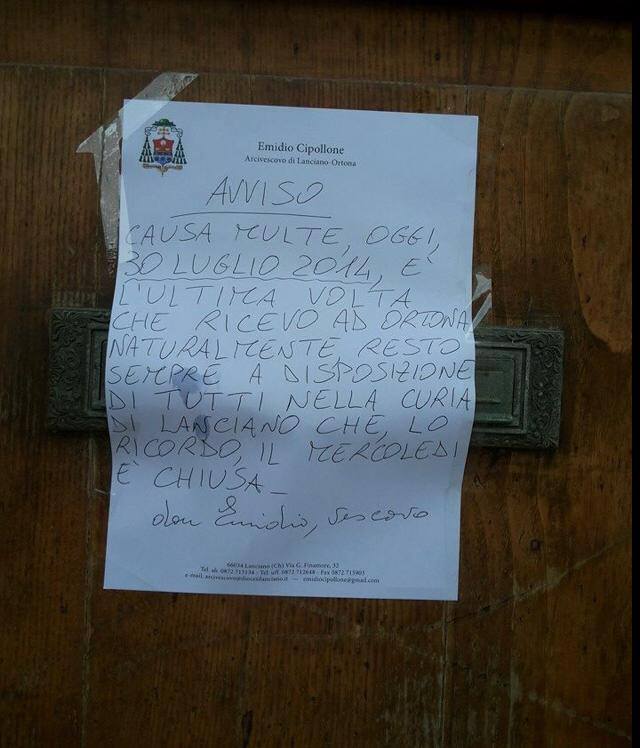 Emidio Cipollone
Arcivescovo di Lanciano-Ortona
AVVISO
CAUSA MULTE, OGGI,
30 LUGLIO 2014, È
L'ULTIMA VOLTA
CHE RICEVO AD ORTONA
NATURALMENTE RESTO
SEMPRE A DISPOSIZIONE
DI TUTTI NELLA CURIA
DI LANCIANO CHE, LO
RICORDO, IL MERCOLEDÌ
È CHIUSA_
don Emidio, vescovo
66034 Lanciano (Ch) Via G. Finamore, 32
Tel. ab. 0872 715134 - Tel. uff. 0872 712648 - Fax 0872 715903
e-mail: arcivescovo@diocesilanciano.it — emidiocipollone@gmail.com